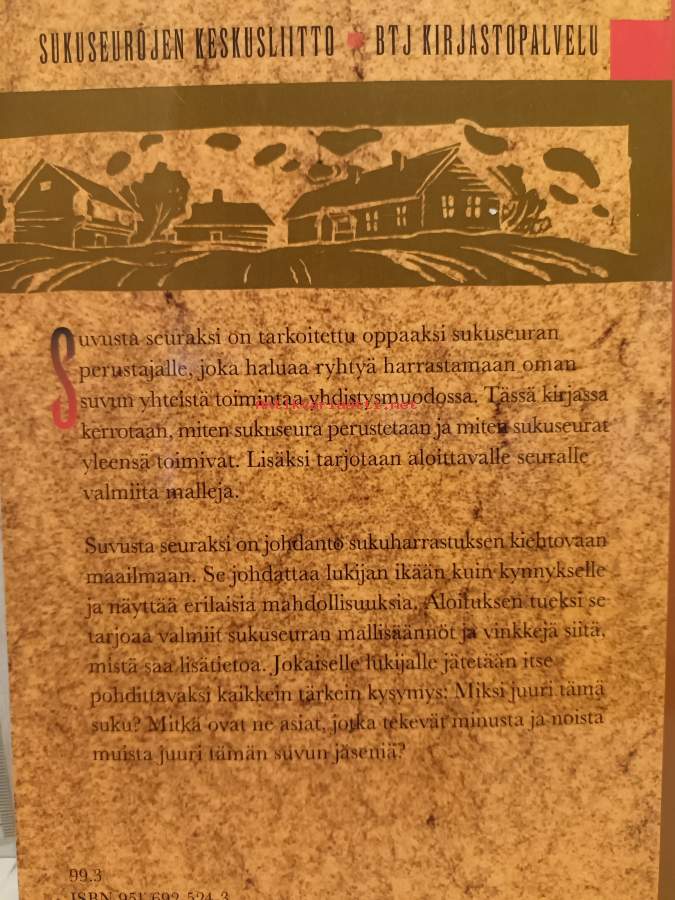 SUKUSEUROJEN KESKUSLIITTO • BTJ KIRJASTOPALVELU
Suvusta seuraksi on tarkoitettu oppaaksi sukuseuran
perustajalle, joka haluaa ryhtyä harrastamaan oman
suvun yhteistä toimintaa yhdistysmuodossa. Tässä kirjassa
kerrotaan, miten sukuseura perustetaan ja miten sukuseurat
yleensä toimivat. Lisäksi tarjotaan aloittavalle seuralle
valmiita malleja.
Suvusta seuraksi on johdanto sukuharrastuksen kiehtovaan
maailmaan. Se johdattaa lukijan ikään kuin kynnykselle
ja näyttää erilaisia mahdollisuuksia. Aloituksen tueksi se
tarjoaa valmiit sukuseuran mallisäännöt ja vinkkejä siitä,
mistä saa lisätietoa. Jokaiselle lukijalle jätetään itse
pohdittavaksi kaikkein tärkein kysymys: Miksi juuri tämä
suku? Mitkä ovat ne asiat, jotka tekevät minusta ja noista
muista juuri tämän suvun jäseniä?
99.3
ISBN 951-692-524-3